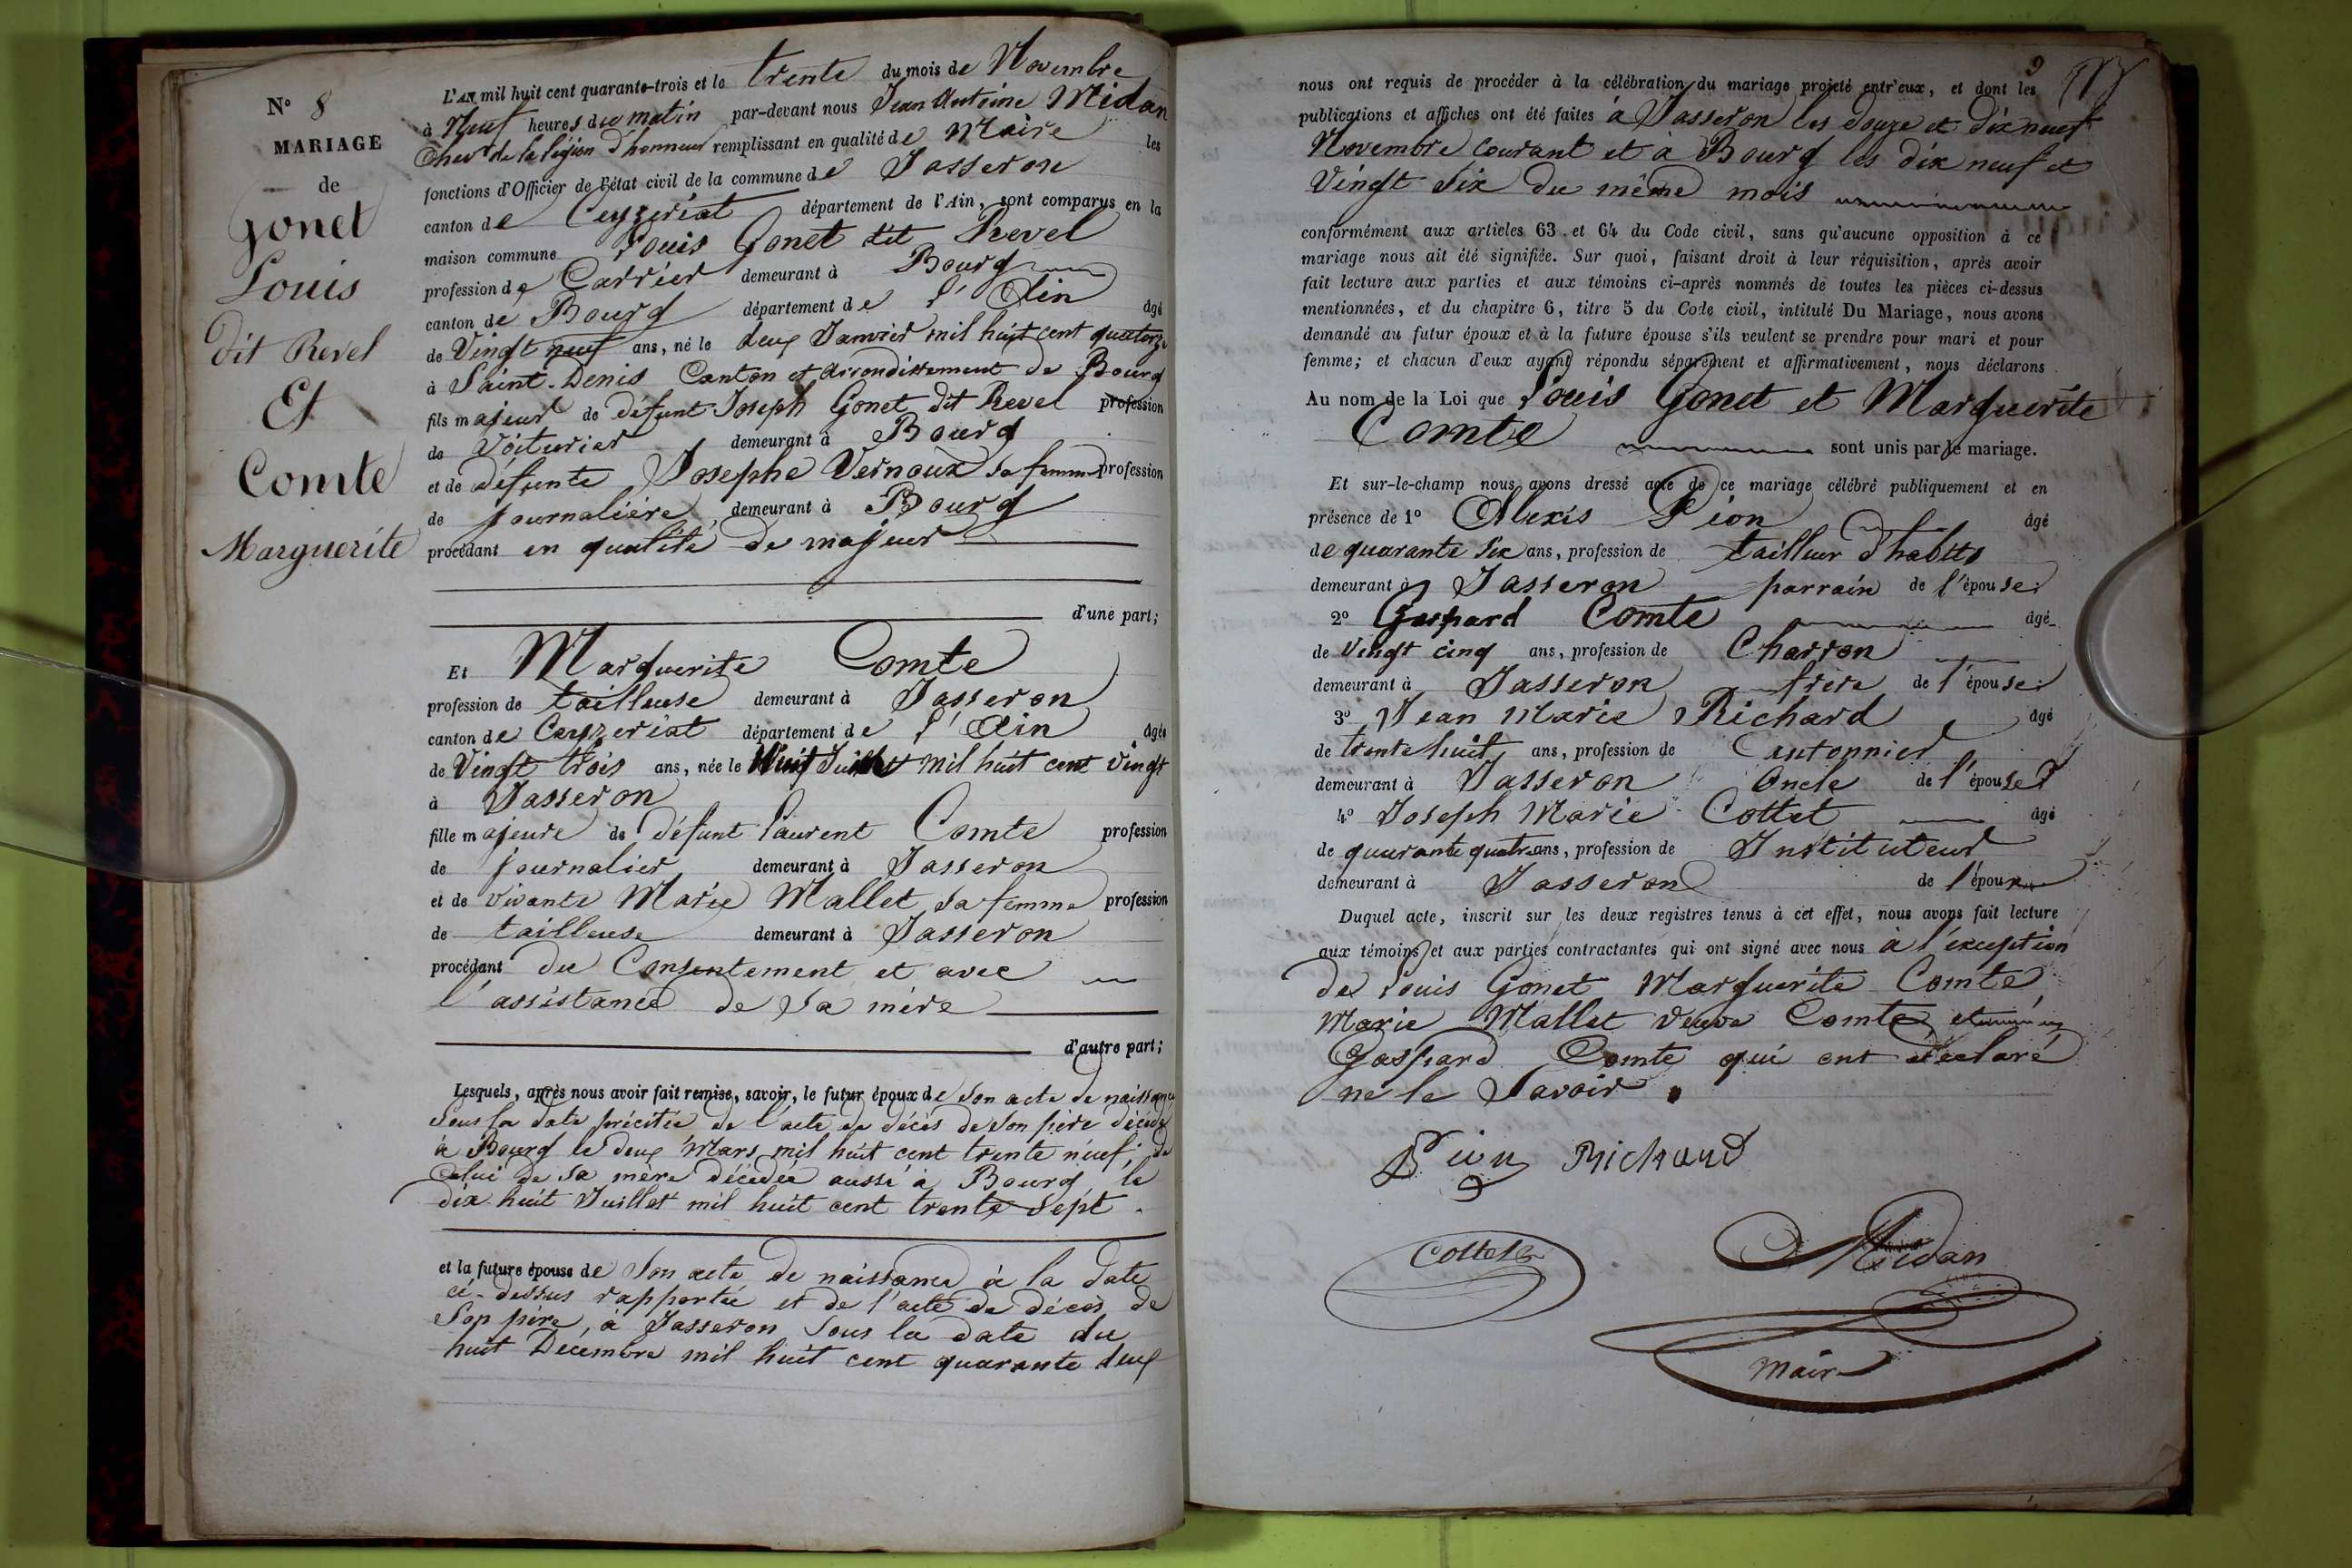 N° 8
MARIAGE
de
Gonet
Louis
dit Revel
Et
Comte
Marguerite
L'an mil huit cent quarante-trois et le trente du mois de Novembre
à Neuf heures du matin par-devant nous Jean Antoine Midan
Chevr de la légion d'honneur remplissant en qualité de Maire les
fonctions d'Officier de l'état civil de la commune de Jasseron
canton de Ceyzeriat département de l'Ain, sont comparus en la
maison commune Louis Gonet dit Revel
profession de Carrier demeurant à Bourg
canton de Bourg département de l'Ain âgé
de Vingt neuf ans, né le deux Janvier mil huit cent quatorze
à Saint-Denis Canton et arrondissement de Bourg
fils majeur de défunt Joseph Gonet dit Revel profession
de Voiturier demeurant à Bourg
et de défunte Josephe Vernoux sa femme profession
de journalière demeurant à Bourg
procédant en qualité de majeur
d'une part;
Et Marguerite Comte
profession de tailleuse demeurant à Jasseron
canton de Ceyzeriat département de l'Ain âgée
de Vingt trois ans, née le Huit Juillet mil huit cent vingt
à Jasseron
fille majeure de défunt Laurent Comte profession
de journalier demeurant à Jasseron
et de vivante Marie Mallet sa femme profession
de tailleuse demeurant à Jasseron
procédant du Consentement et avec
l'assistance de sa mère
d'autre part;
Lesquels, après nous avoir fait remise, savoir, le futur époux de son acte de naissance
sous la date précitée de l'acte de décès de son père décédé
à Bourg le deux Mars mil huit cent trente neuf, de
celui de sa mère décédée aussi à Bourg le
dix huit Juillet mil huit cent trente sept.
et la future épouse de son acte de naissance à la date
ci-dessus rapportée et de l'acte de décès de
son père, à Jasseron sous la date du
huit Décembre mil huit cent quarante deux
9
nous ont requis de procéder à la célébration du mariage projeté entr'eux, et dont les
publications et affiches ont été faites à Jasseron les douze et dix neuf
Novembre courant et à Bourg les dix neuf et
vingt six du même mois
conformément aux articles 63 et 64 du Code civil, sans qu'aucune opposition à ce
mariage nous ait été signifiée. Sur quoi, faisant droit à leur réquisition, après avoir
fait lecture aux parties et aux témoins ci-après nommés de toutes les pièces ci-dessus
mentionnées, et du chapitre 6, titre 5 du Code civil, intitulé Du Mariage, nous avons
demandé au futur époux et à la future épouse s'ils veulent se prendre pour mari et pour
femme; et chacun d'eux ayant répondu séparément et affirmativement, nous déclarons
Au nom de la Loi que Louis Gonet et Marguerite
Comte sont unis par le mariage.
Et sur-le-champ nous avons dressé acte de ce mariage célébré publiquement et en
présence de 1° Alexis Pion âgé
de quarante six ans, profession de tailleur d'habits
demeurant à Jasseron parrain de l'épouse
2° Gaspard Comte âgé
de Vingt cinq ans, profession de Charron
demeurant à Jasseron frère de l'épouse
3° Jean Marie Richard âgé
de trente huit ans, profession de Cantonnier
demeurant à Jasseron Oncle de l'épouse
4° Joseph Marie Cottet âgé
de quarante quatre ans, profession de Instituteur
demeurant à Jasseron de l'épou
Duquel acte, inscrit sur les deux registres tenus à cet effet, nous avons fait lecture
aux témoins et aux parties contractantes qui ont signé avec nous à l'exception
de Louis Gonet Marguerite Comte
Marie Mallet veuve Comte et
Gaspard Comte qui ont déclaré
ne le savoir.
Pion Richard
Cottet Midan
Maire